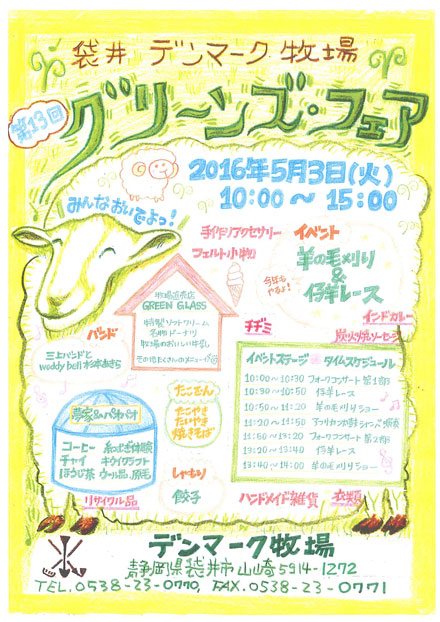 袋井 デンマーク牧場
第13回
グリーンズ・フェア
2016年5月3日(火)
10:00～15:00
みんなおいでよっ!
手作りアクセサリー
フェルト小物
イベント
羊の毛刈り
&
仔羊レース
今年も
やるよ!
牧場直売店
GREEN GLASS
特製ソフトクリーム
名物ドーナツ
牧場のおいしい牛乳
その他たくさんのメニュー
インドカレー
炭火焼ソーセージ
チヂミ
バンド
三上バンドと
woddy bell 杉本あきら
イベントステージ タイムスケジュール
10:00～10:30 フォークコンサート 第1部
10:30～10:50 仔羊レース
10:50～11:20 羊の毛刈りショー
11:20～11:50 アフリカン太鼓
11:50～13:20 フォークコンサート 第2部
13:20～13:40 仔羊レース
13:40～14:00 羊の毛刈りショー
夢家&パオパオ
コーヒー 糸つむぎ体験
チャイ キウイクラフト
ほうじ茶 ウール品、原毛
たこやき
たいやき
焼きそば
しゃもり
餃子
リサイクル品
ハンドメイド雑貨
衣類
デンマーク牧場
静岡県袋井市山崎5914-1272
TEL.0538-23-0770, FAX.0538-23-0771